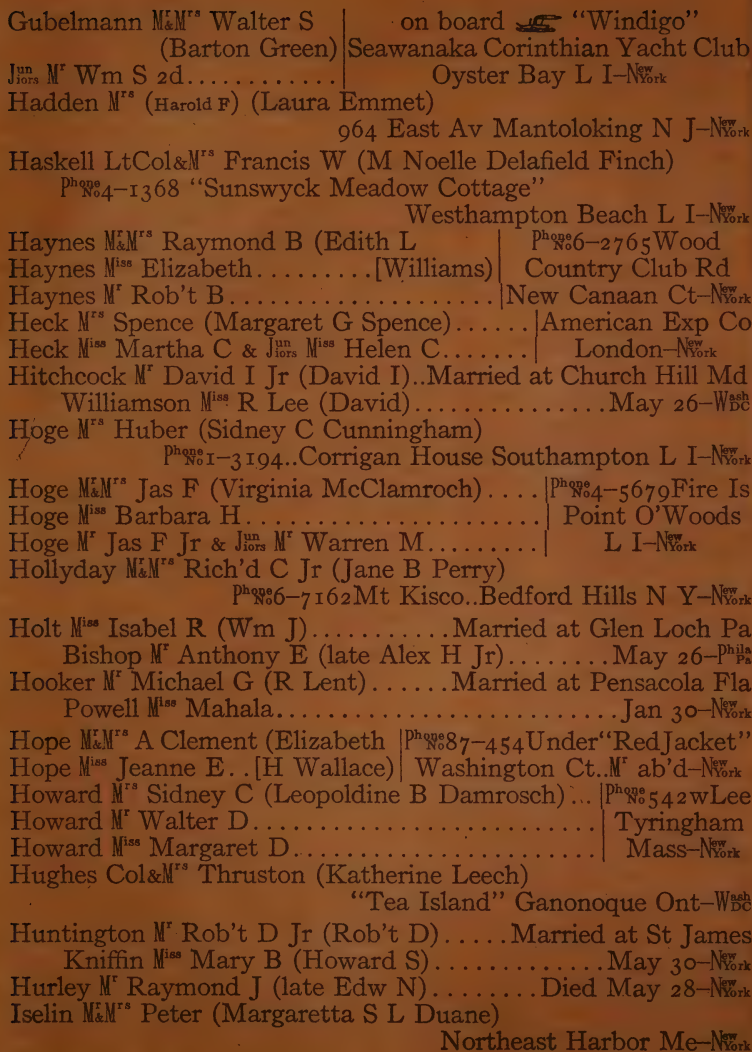 Gubelmann Mr&Mrs Walter S | on board "Windigo"
(Barton Green) | Seawanaka Corinthian Yacht Club
Juniors Mr Wm S 2d............ | Oyster Bay L I-New York
Hadden Mrs (Harold F) (Laura Emmet)
964 East Av Mantoloking N J-New York
Haskell LtCol&Mrs Francis W (M Noelle Delafield Finch)
Phone No 4-1368 "Sunswyck Meadow Cottage"
Westhampton Beach L I-New York
Haynes Mr&Mrs Raymond B (Edith L | Phone No 6-2765Wood
Haynes Miss Elizabeth.........[Williams) | Country Club Rd
Haynes Mr Rob't B..................... | New Canaan Ct-New York
Heck Mrs Spence (Margaret G Spence)...... | American Exp Co
Heck Miss Martha C & Juniors Miss Helen C....... | London-New York
Hitchcock Mr David I Jr (David I)..Married at Church Hill Md
Williamson Miss R Lee (David)...............May 26-Wash DC
Hoge Mrs Huber (Sidney C Cunningham)
Phone No 1-3194..Corrigan House Southampton L I-New York
Hoge Mr&Mrs Jas F (Virginia McClamroch).... | Phone No 4-5679Fire Is
Hoge Miss Barbara H.................... | Point O'Woods
Hoge Mr Jas F Jr & Juniors Mr Warren M......... | L I-New York
Hollyday Mr&Mrs Rich'd C Jr (Jane B Perry)
Phone No 6-7162Mt Kisco..Bedford Hills N Y-New York
Holt Miss Isabel R (Wm J)..........Married at Glen Loch Pa
Bishop Mr Anthony E (late Alex H Jr)........May 26-Phila Pa
Hooker Mr Michael G (R Lent)......Married at Pensacola Fla
Powell Miss Mahala..........................Jan 30-New York
Hope Mr&Mrs A Clement (Elizabeth | Phone No 87-454Under"RedJacket"
Hope Miss Jeanne E..[H Wallace) | Washington Ct..Mr ab'd-New York
Howard Mrs Sidney C (Leopoldine B Damrosch)... | Phone No 542wLee
Howard Mr Walter D........................... | Tyringham
Howard Miss Margaret D........................ | Mass-New York
Hughes Col&Mrs Thruston (Katherine Leech)
"Tea Island" Ganonoque Ont-Wash DC
Huntington Mr Rob't D Jr (Rob't D).....Married at St James
Kniffin Miss Mary B (Howard S).............May 30-New York
Hurley Mr Raymond J (late Edw N)........Died May 28-New York
Iselin Mr&Mrs Peter (Margaretta S L Duane)
Northeast Harbor Me-New York